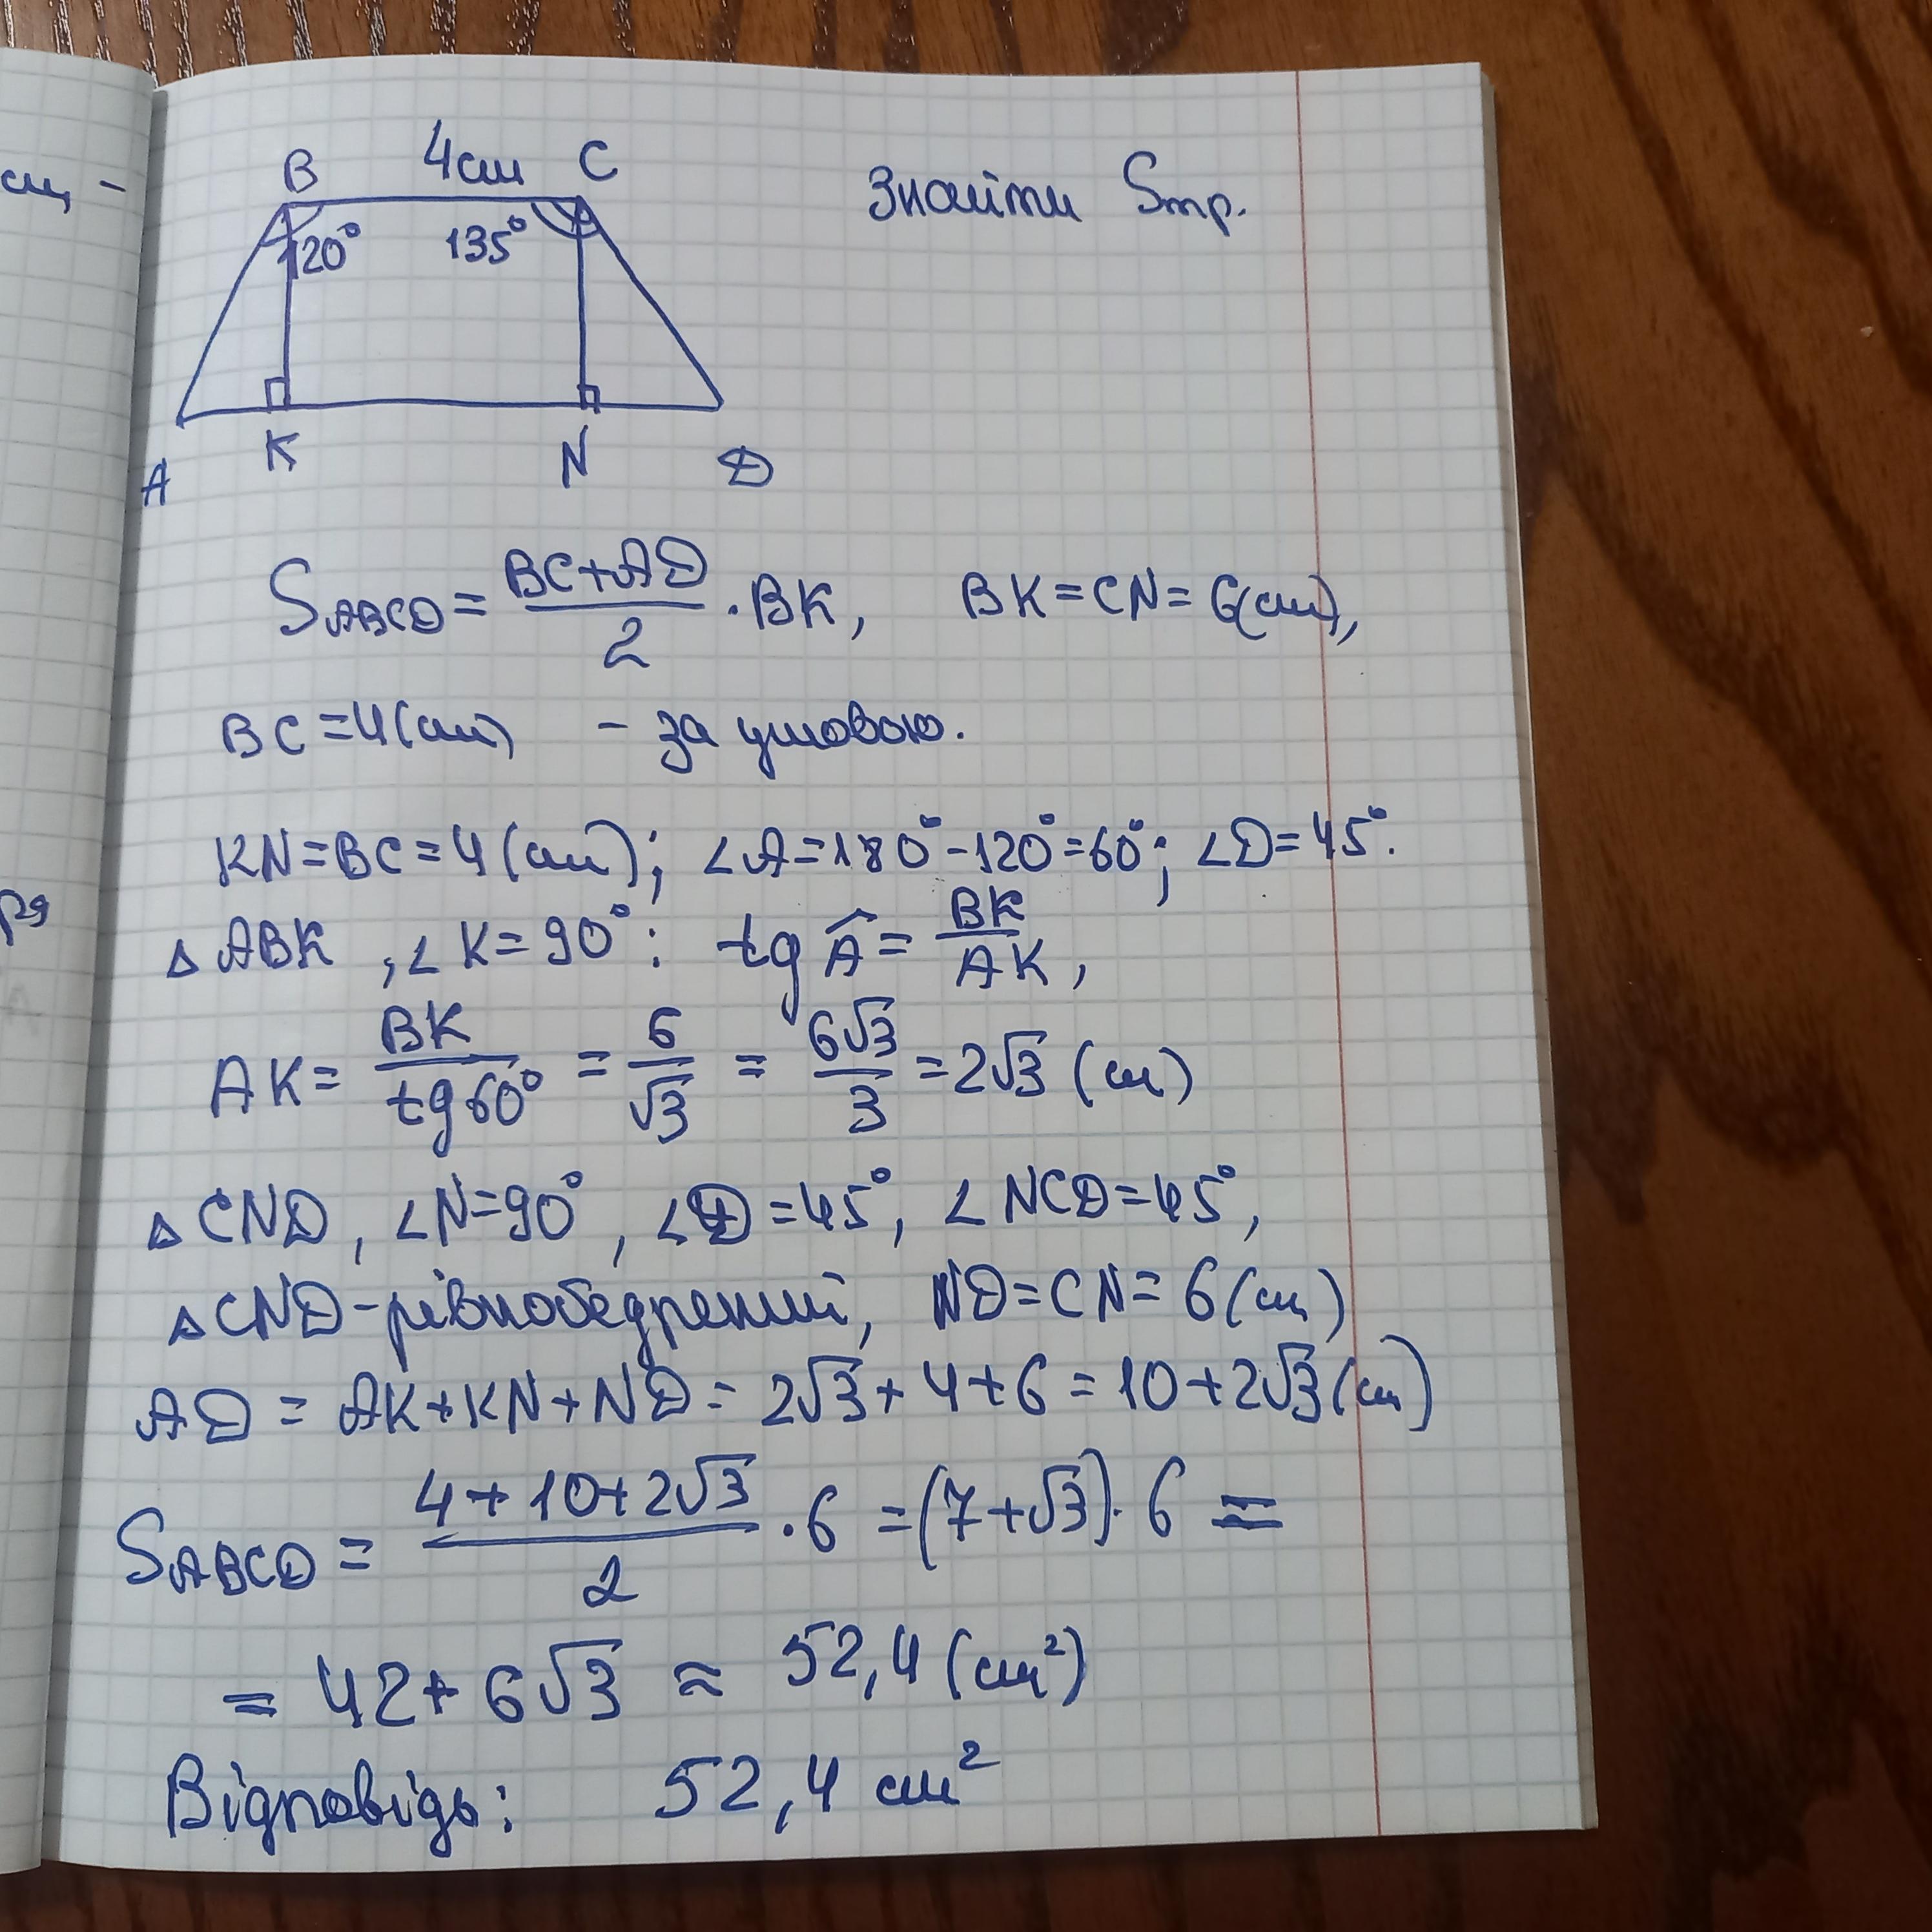 сщ -
B 4см C
Знайти Sтр.
120° 135°
A K N D
S_ABCD = (BC+AD)/2 · BK, BK = CN = 6(см),
BC = 4(см) - за умовою.
KN = BC = 4(см); ∠A = 180° - 120° = 60°; ∠D = 45°.
ря
△ ABK, ∠K = 90°: tg Â = BK/AK,
AK = BK/tg60° = 6/√3 = 6√3/3 = 2√3 (см)
△ CND, ∠N = 90°, ∠D = 45°, ∠NCD = 45°,
△ CND - рівнобедрений, ND = CN = 6(см)
AD = AK + KN + ND = 2√3 + 4 + 6 = 10 + 2√3 (см)
S_ABCD = (4 + 10 + 2√3)/2 · 6 = (7 + √3) · 6 =
= 42 + 6√3 ≈ 52,4 (см²)
Відповідь: 52,4 см²